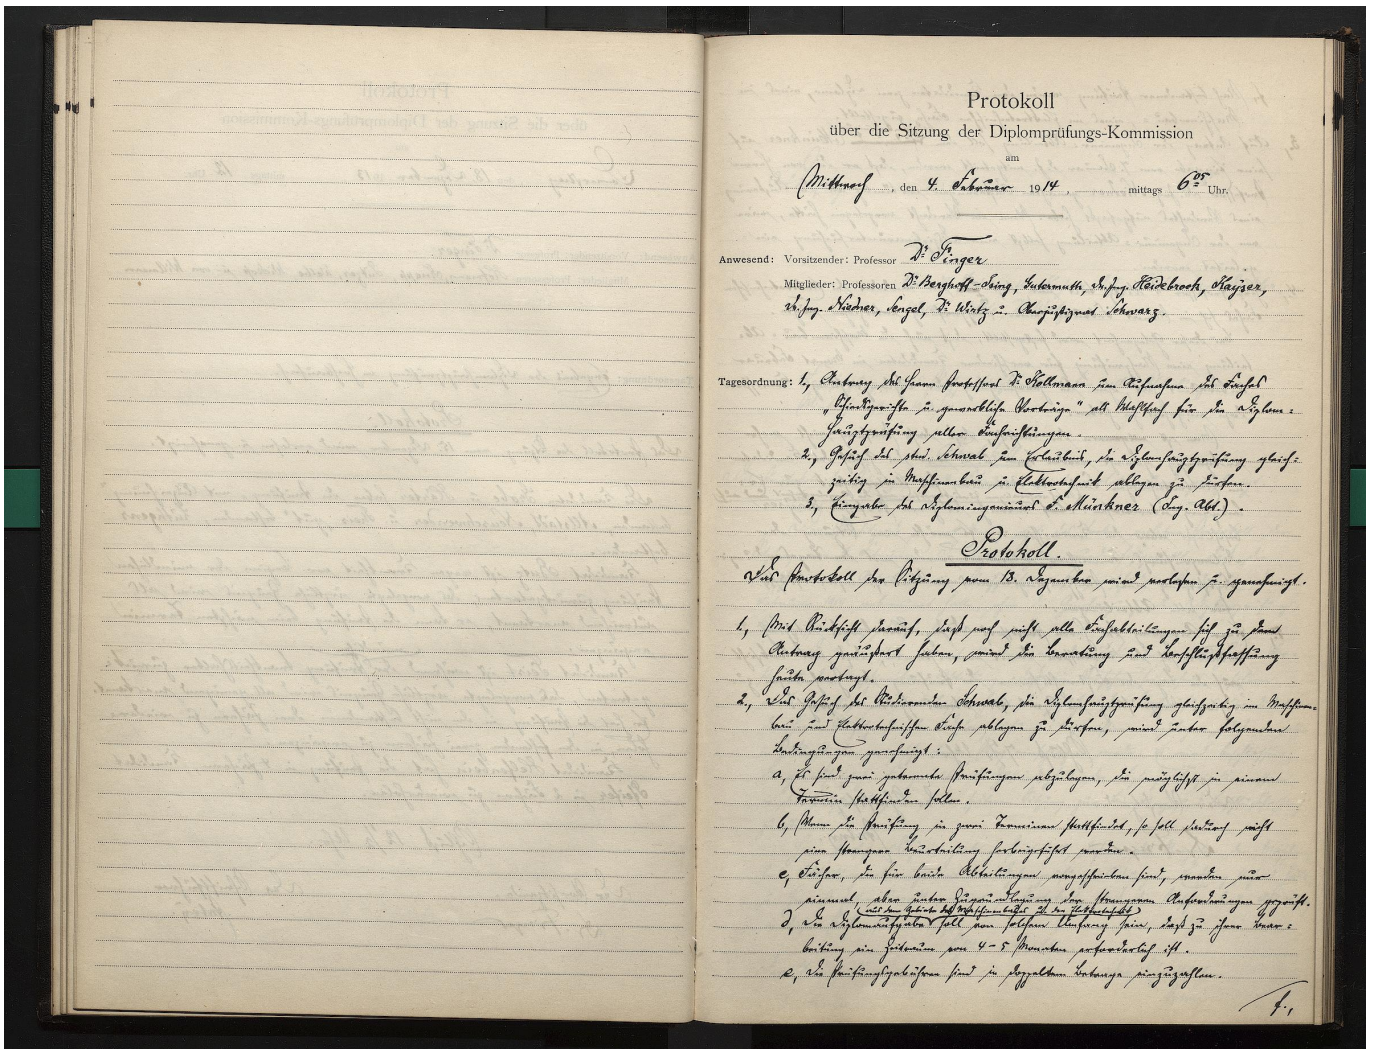 Protokoll
über die Sitzung der Diplomprüfungs-Kommission
am
Mittwoch, den 4. Februar 1914, mittags 6 05 Uhr.
Anwesend: Vorsitzender: Professor Dr. Finger
Mitglieder: Professoren Dr. Berghoff-Ising, Gutermuth, Dr. Ing. Heidebroek, Kayser,
Dr. Ing. Niedner, Sengel, Dr. Wirtz u. Oberjustizrat Schwarz.
Tagesordnung: 1., Antrag des Herrn Professors Dr. Kollmann um Aufnahme des Faches
„Schiedsgerichte u. gewerbliche Vorträge" als Wahlfach für die Diplom-
hauptprüfung aller Fachrichtungen.
2., Gesuch des stud. Schwab um Erlaubnis, die Diplomhauptprüfung gleich-
zeitig in Maschinenbau u. Elektrotechnik ablegen zu dürfen.
3., Eingabe des Diplomingenieurs F. Münkner (Ing. Abt.).
Protokoll.
Das Protokoll der Sitzung vom 13. Dezember wird verlesen u. genehmigt.
1., Mit Rücksicht darauf, daß noch nicht alle Fachabteilungen sich zu dem
Antrag geäußert haben, wird die Beratung und Beschlußfassung
heute vertagt.
2., Das Gesuch des Studierenden Schwab, die Diplomhauptprüfung gleichzeitig im Maschinen-
bau und elektrotechnischen Fache ablegen zu dürfen, wird unter folgenden
Bedingungen genehmigt:
a, Es sind zwei getrennte Prüfungen abzulegen, die möglichst in einem
Termin stattfinden sollen.
b, Wenn die Prüfung in zwei Terminen stattfindet, so soll dadurch nicht
eine strengere Beurteilung herbeigeführt werden.
c, Fächer, die für beide Abteilungen vorgeschrieben sind, werden nur
einmal, aber unter Zugrundlegung der strengeren Anforderungen geprüft.
aus dem Gebiete des Maschinenbaues u. der Elektrotechnik
d, Die Diplomaufgabe soll von solchem Umfang sein, daß zu ihrer Bear-
beitung ein Zeitraum von 4-5 Monaten erforderlich ist.
e, Die Prüfungsgebühren sind in doppeltem Betrage einzuzahlen.
f.,